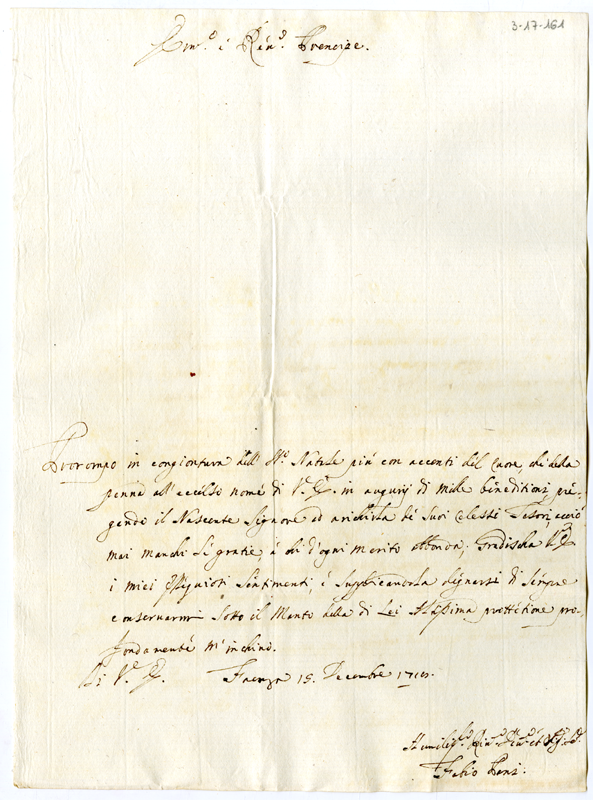 3-17-161
Em.º e Rev.º Prencipe.
Prorompo in congiontura dell' S.º Natale piú con accenti del Cuore, che della
penna all' eccelso nome di V.ª E.ª in augurij di mille benedittioni, pre-
gando il Nascente Signore ad arichirla de Suoi Celesti Tesori, acció
mai manchi di gratie á chi d'ogni merito abbonda; Gradischa V.E.
i miei Sentimenti, é Supplicandola degnarsi di Sempre
conservarmi Sotto il Manto della di Lei Altissima prottetione pro-
fondamente m' inchino.
Di V.ª E.ª Faenza 15. Decembre
Humiliss.º
Fabio